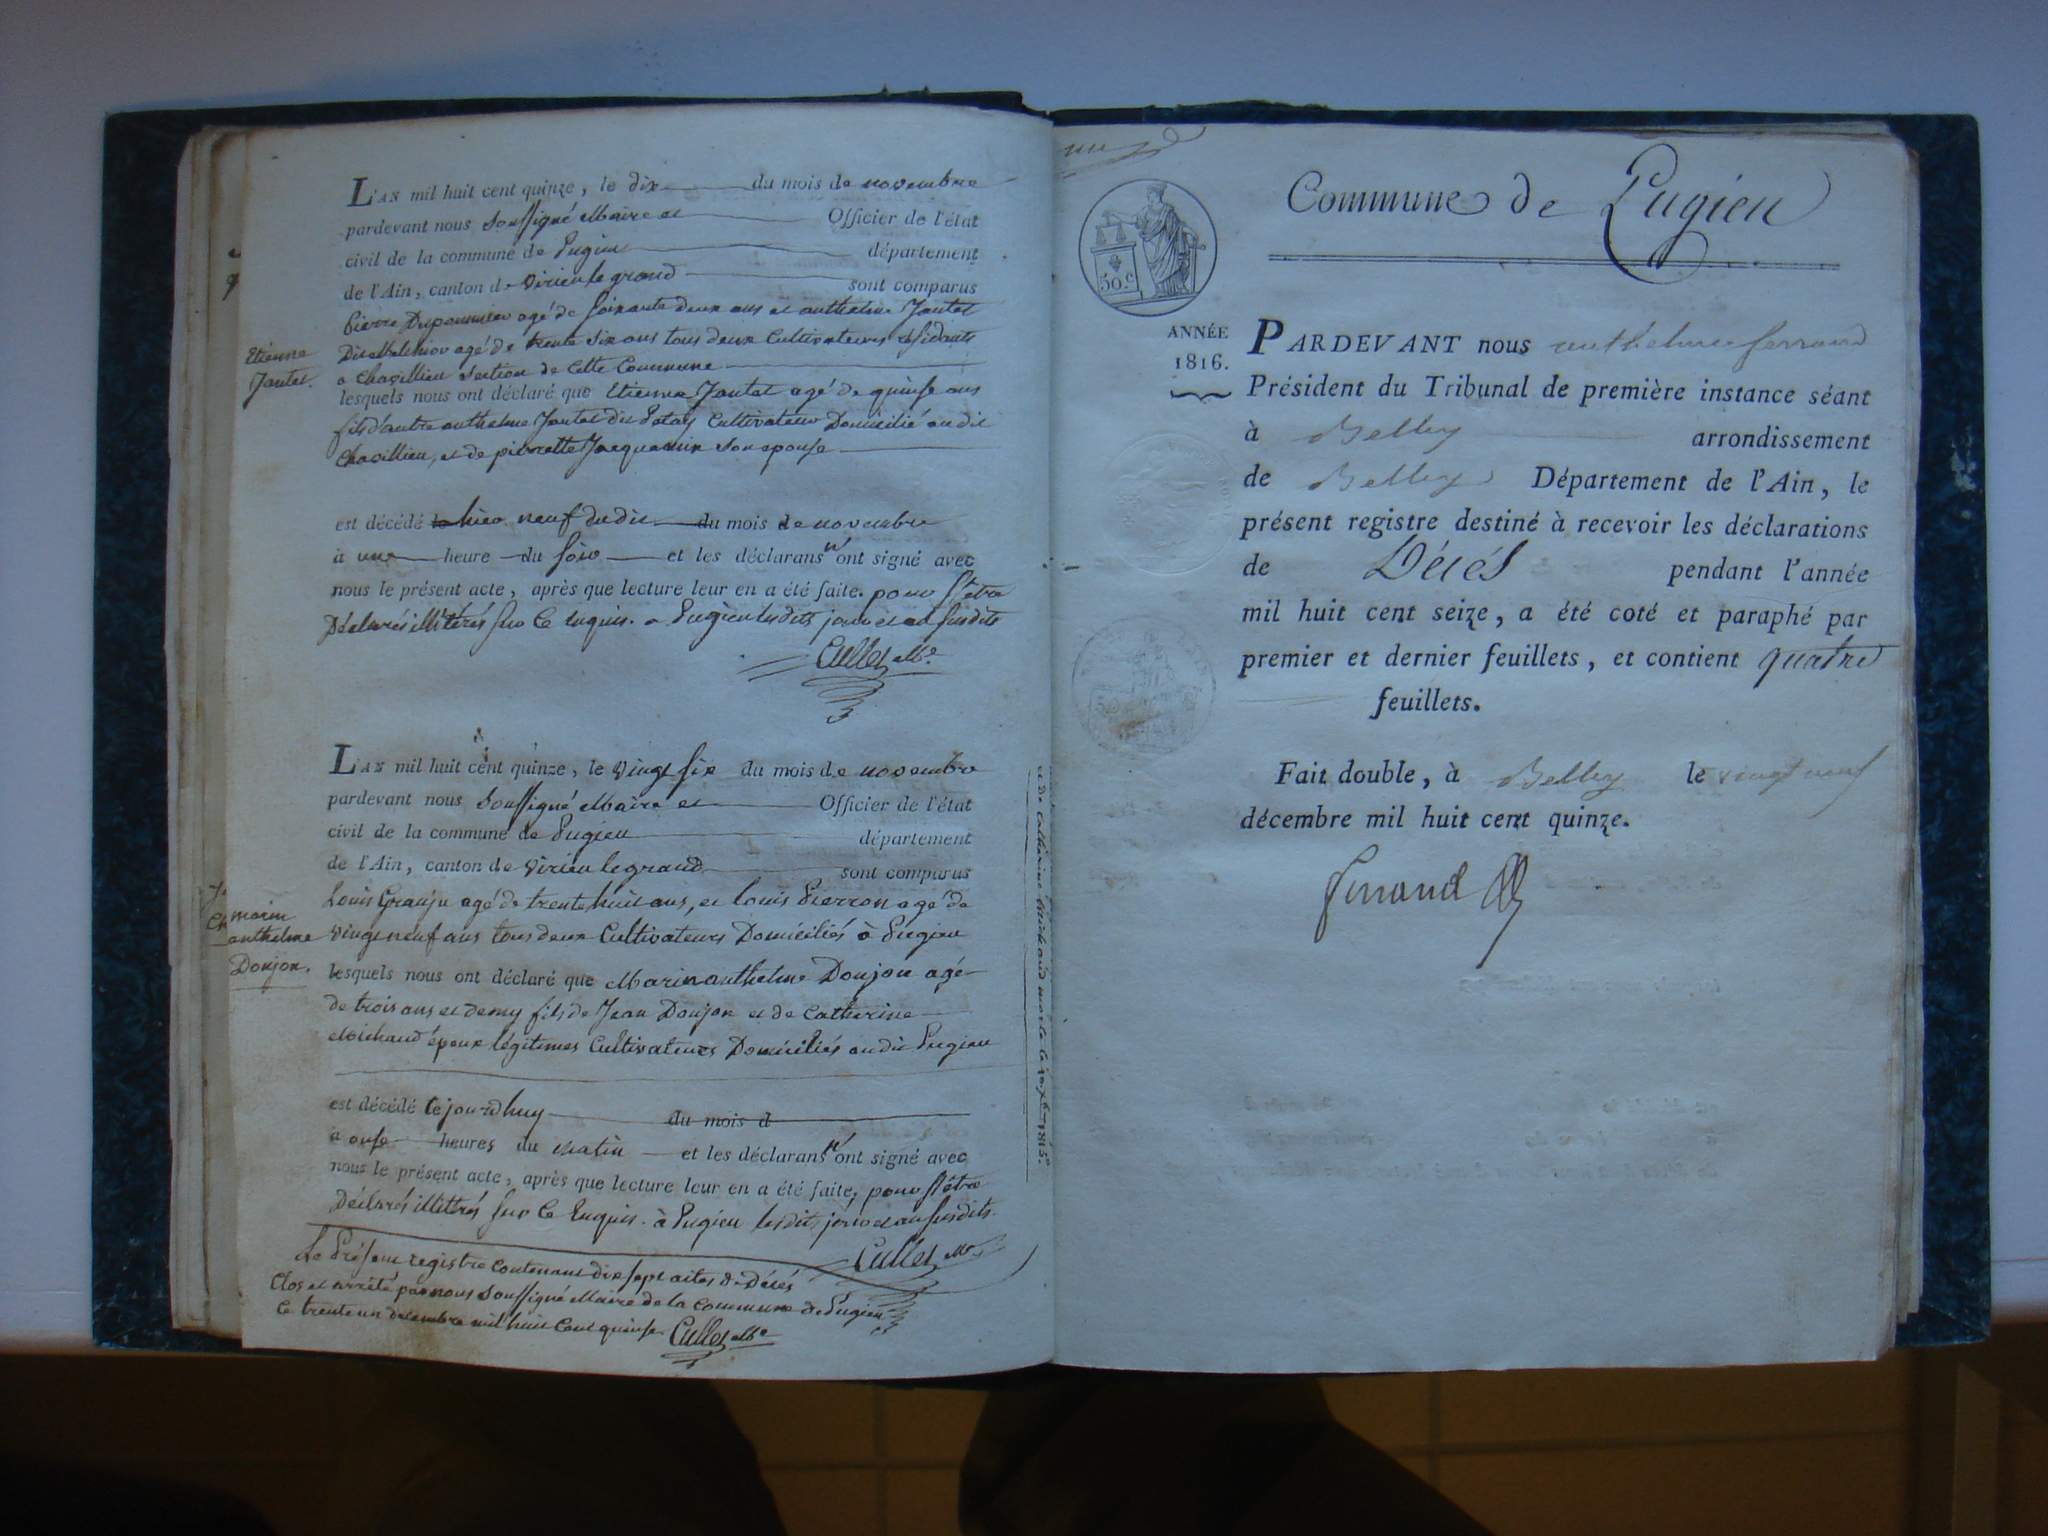 L'AN mil huit cent quinze, le dix du mois de novembre
pardevant nous soussigné Maire et Officier de l'état
civil de la commune de Pugieu département
de l'Ain, canton de virieu le grand sont comparus
pierre Dupommier agé de soixante deux ans et anthelme Jantet
Dit Melchior agé de trente six ans tous deux Cultivateurs résidants
a Chavillieu section de Cette Commune
Etienne
Jantet.
lesquels nous ont déclaré que Etienne Jantet agé de quinse ans
fils d'autre anthelme Jantet dit Cultivateur Domicilié au dit
Chavillieu, et de pierrette Jacquemin son epouse
est décédé le hier neuf du dit du mois de novembre
à une heure du soir et les déclarans n'ont signé avec
nous le présent acte, après que lecture leur en a été faite. pour s'etre
Déclarés illitérés sur Ce enquis. a Pugieu lesdits jour et an susdits
Cullet Me.
L'AN mil huit cent quinze, le vingt six du mois de novembre
pardevant nous soussigné Maire et Officier de l'état
civil de la commune de Pugieu département
de l'Ain, canton de virieu le grand sont comparus
Louis Granju agé de trente huit ans, et louis Pierron agé de
vingt neuf ans tous deux Cultivateurs Domiciliés à Pugieu
marin
anthelme
Donjon.
lesquels nous ont déclaré que Marin anthelme Donjon agé
de trois ans et demy fils de Jean Donjon et de Catherine
Michaud époux légitimes Cultivateurs Domiciliés au dit Pugieu
est décédé Cejourd'huy du mois d
a onse heures du matin et les déclarans n'ont signé avec
nous le présent acte, après que lecture leur en a été faite, pour s'etre
Déclarés illittrés sur Ce enquis. à Pugieu lesdits jour et an susdits.
Cullet Me.
Le Présent registre contenant dix sept actes de Décés
Clos et arrété par nous soussigné Maire de la commune de Pugieu
Ce trente un décembre mil huit Cent quinse. Cullet Me
et de catherine michaud morte le 1815.
Commune de Pugieu
50.c
ANNÉE
1816.
PARDEVANT nous anthelme ferrand
Président du Tribunal de première instance séant
à Belley arrondissement
de Belley Département de l'Ain, le
présent registre destiné à recevoir les déclarations
de Décés pendant l'année
mil huit cent seize, a été coté et paraphé par
premier et dernier feuillets, et contient quatre
feuillets.
Fait double, à Belley le vingt neuf
décembre mil huit cent quinze.
ferrand